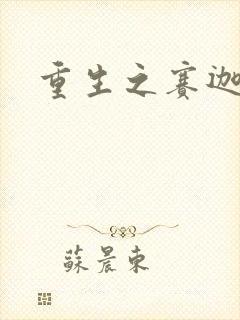 重生之赛迦
蘇晨東